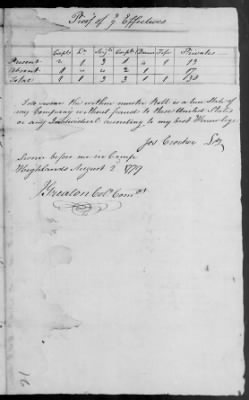 Proof of ye Effectives
Capts Lts Serjts Corpls Drums Fifes Privates
Present 2 1 3 1 0 1 13
Absent 0 0 2 1 1 17
Total 1 1 3 3 1 1 30
I do swear the within muster Roll is a true State of
my Company without fraud to these United States
or any Individual according to my best Knowledge
Jos Crocker Capt
Sworn before me in Camp
Highlands August 2 1779
J Greaton Colo Comdt
16